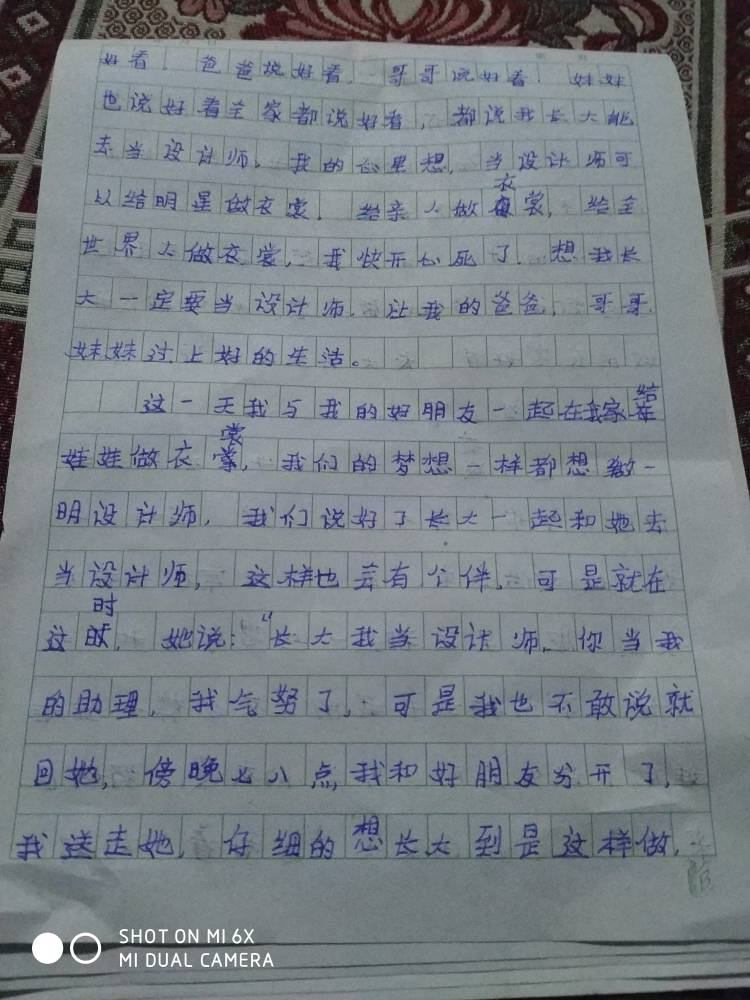 好看，爸爸说好看，哥哥说好看，妹妹
也说好看全家都说好看，都说我长大能
去当设计师，我的心里想，当设计师可
以给明星做衣裳，给亲人做衣裳，给全
世界人做衣裳，我快开心死了，想我长
大一定要当设计师，让我的爸爸，哥哥，
妹妹过上好的生活。
这一天我与我的好朋友一起在我家给
娃娃做衣裳，我们的梦想一样都想做一
明设计师，我们说好了长大一起和她去
当设计师，这样也会有个伴，可是就在
这时，她说："长大我当设计师，你当我
的助理，我气努了，可是我也不敢说就
回她，傍晚七八点我和好朋友分开了，
我送走她，仔细的想长大到是这样做，
SHOT ON MI 6X
MI DUAL CAMERA